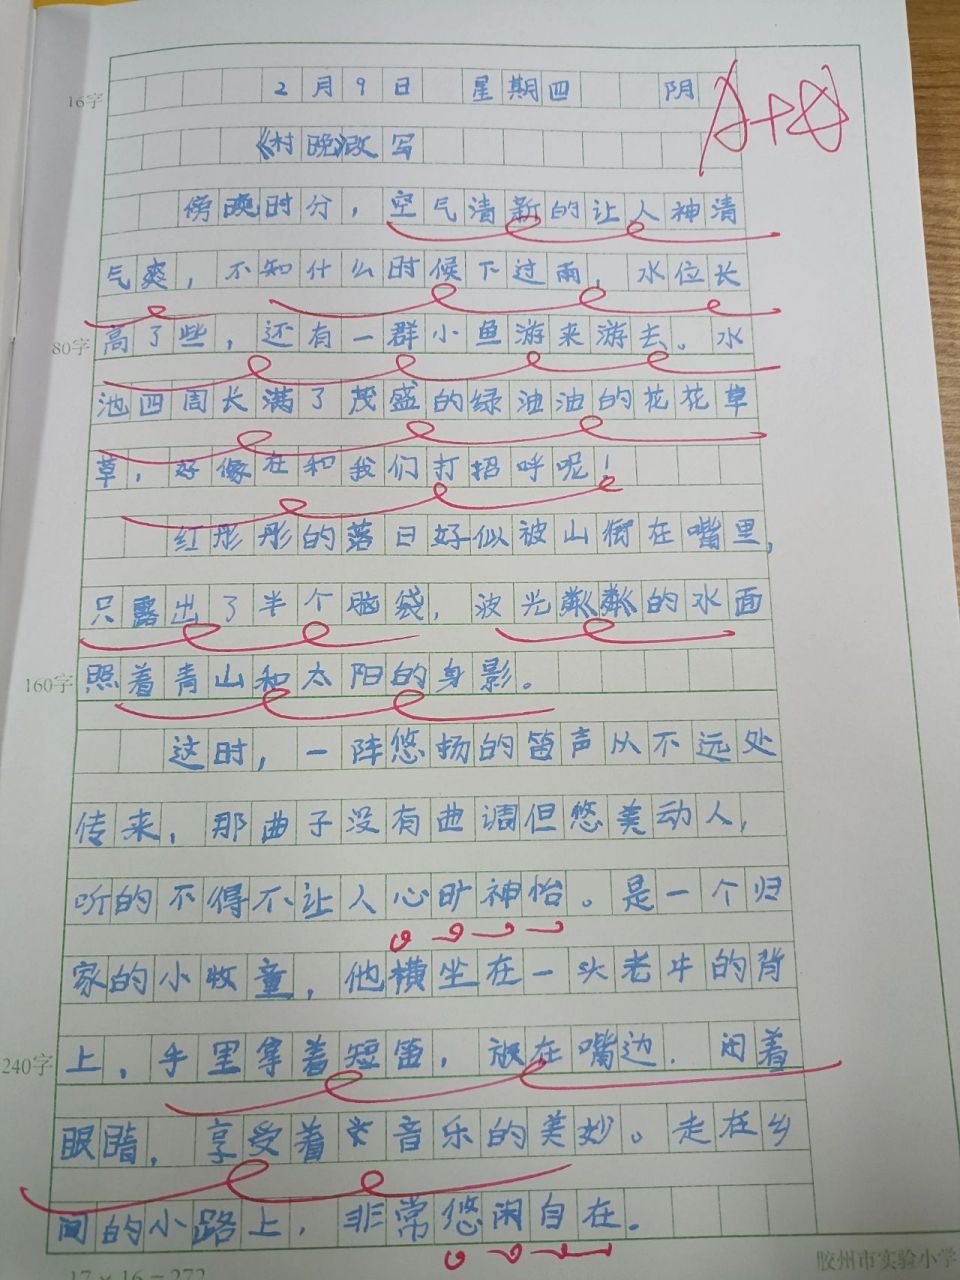 2月9日 星期四 阴
A+
16字
《村晚》改写
傍晚时分，空气清新的让人神清
气爽，不知什么时候下过雨，水位长
80字
高了些，还有一群小鱼游来游去。水
池四周长满了茂盛的绿油油的花花草
草，好像在和我们打招呼呢！
红彤彤的落日好似被山衔在嘴里，
只露出了半个脑袋，波光粼粼的水面
160字
照着青山和太阳的身影。
这时，一阵悠扬的笛声从不远处
传来，那曲子没有曲调但悠美动人，
听的不得不让人心旷神怡。是一个归
家的小牧童，他横坐在一头老牛的背
240字
上，手里拿着短笛，放在嘴边，闭着
眼睛，享受着音乐的美妙。走在乡
间的小路上，非常悠闲自在。
17×16=272
胶州市实验小学